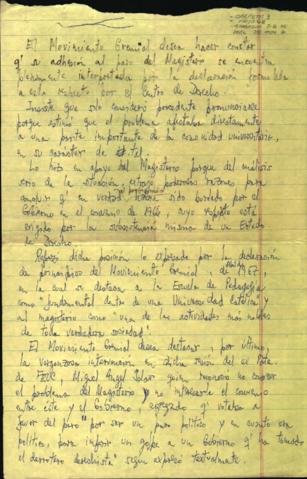 El Movimiento Gremial desea hacer constar
q' su adhesión al paro del Magisterio se encuentra
plenamente interpretada por la declaración formulada
a este respecto por el Centro de Derecho.
Insiste que sólo consideró procedente pronunciarse
porque estimó que el problema afectaba directamente
a una parte importante de la comunidad universitaria,
en su carácter de tal.
Lo hizo en apoyo del Magisterio porque del análisis
serio de la situación, poderosas razones para
concluir q' en verdad había sido burlado por el
Gobierno en el convenio de 1968, cuyo respeto está
exigido por la subsistencia misma de un Estado
de Derecho.
Reforzó dicha posición lo expresado por la declaración
de principios del Movimiento Gremial, de 1967
en la cual se destaca a la Escuela de Pedagogía
como "fundamental dentro de una Universidad Católica" y
al magisterio como "una de las actividades más nobles
de toda verdadera sociedad".
El Movimiento Gremial desea destacar, por último,
la vergonzosa intervención en dicha sesión del ex Pdte.
de FEUC, Miguel Angel Solar quien reconoció no conocer
el problema del Magisterio y no interesarle el convenio
entre éste y el Gobierno, agregando q' votaba a
favor del paro "por ser un paro político y en cuanto
político, para inferir un golpe a un Gobierno q' ha tomado
el derrotero derechista" según expresó textualmente.